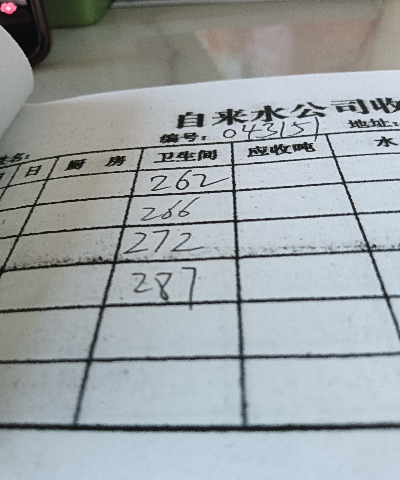 自来水公司收
编号: 043151 地址:
姓名:
日 厨房 卫生间 应收吨 水
262
266
272
287